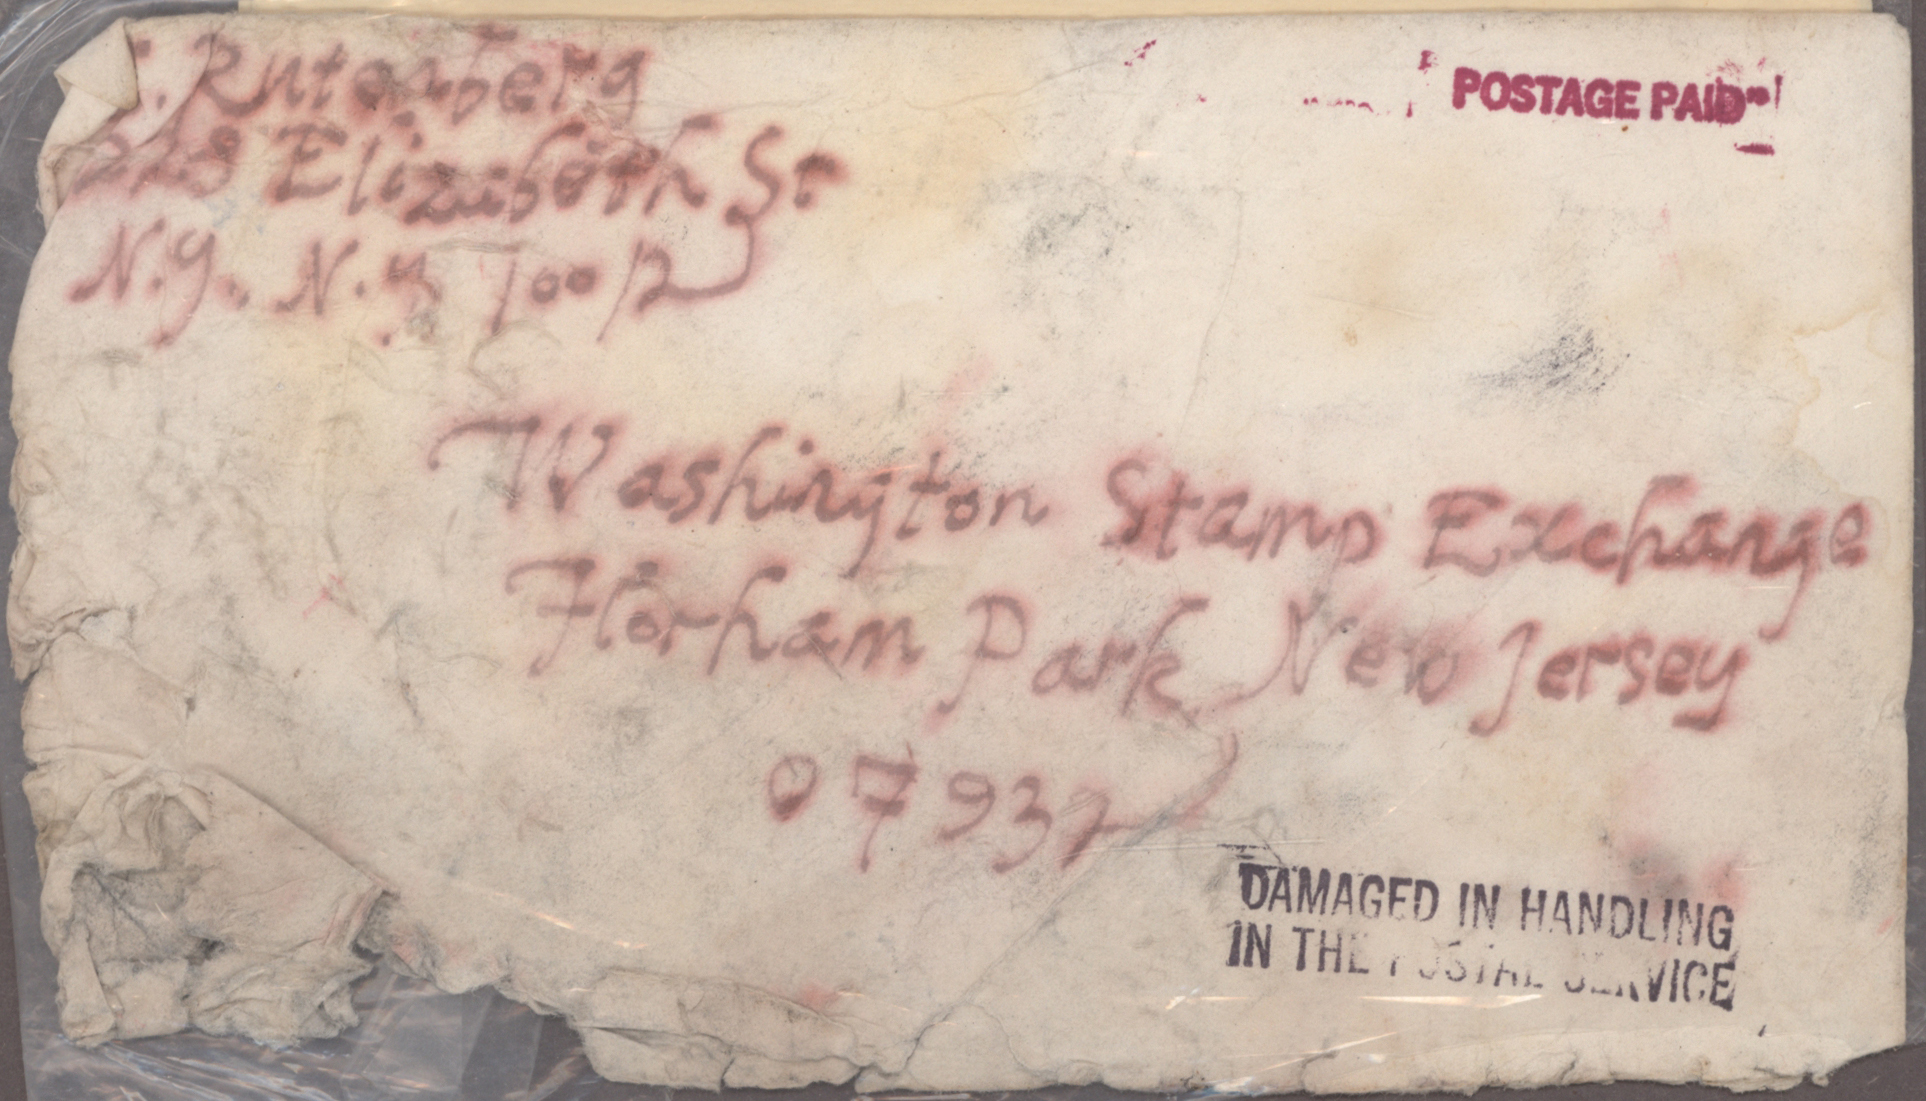 . Rutenberg
223 Elizabeth St
N.Y. N.Y 10012
POSTAGE PAID
Washington Stamp Exchange
Florham Park New Jersey
07932
DAMAGED IN HANDLING
IN THE POSTAL SERVICE